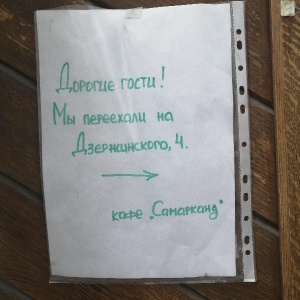 Дорогие гости!
Мы переехали на
Дзержинского, 4.
кафе „Самарканд"